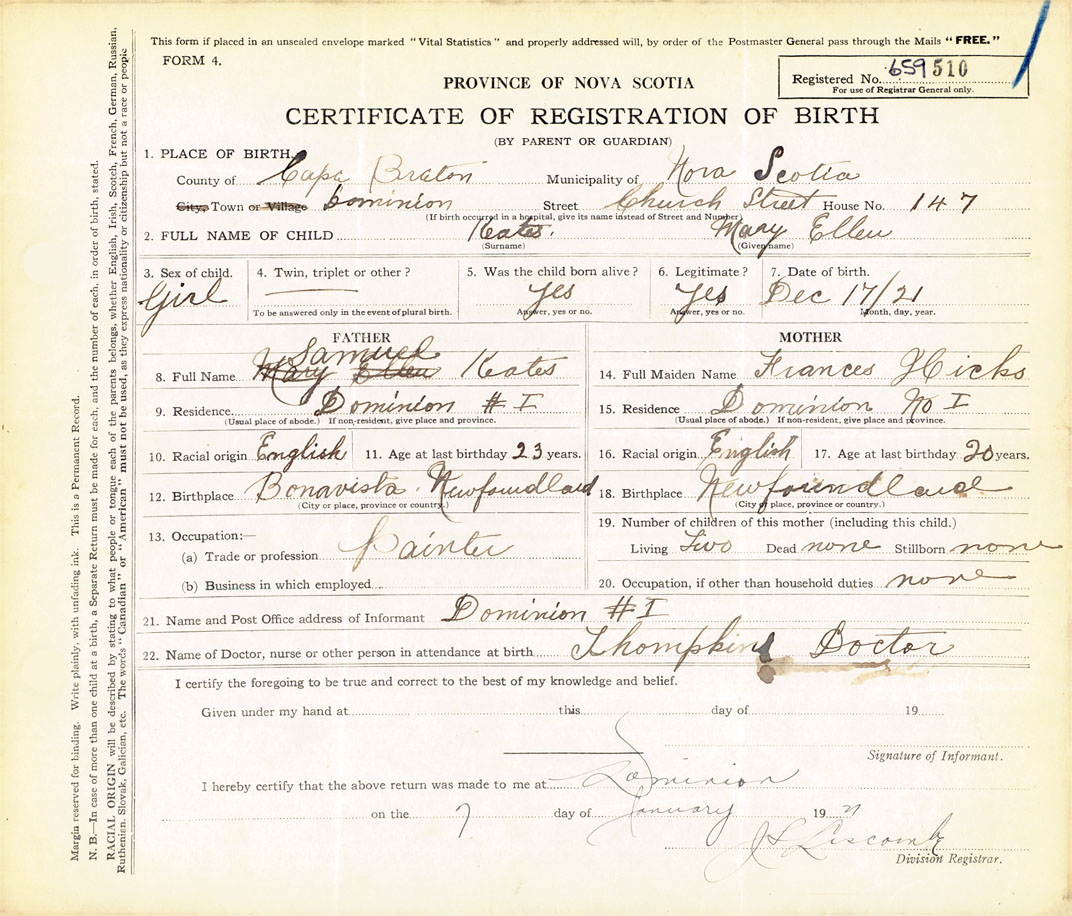 This form if placed in an unsealed envelope marked "Vital Statistics" and properly addressed will, by order of the Postmaster General pass through the Mails "FREE."
FORM 4.
Registered No. 659 510
For use of Registrar General only.
PROVINCE OF NOVA SCOTIA
CERTIFICATE OF REGISTRATION OF BIRTH
(BY PARENT OR GUARDIAN)
1. PLACE OF BIRTH.
County of Cape Breton Municipality of Nova Scotia
City, Town or Village Dominion Street Church Street House No. 147
(If birth occurred in a hospital, give its name instead of Street and Number)
2. FULL NAME OF CHILD Keates. Mary Ellen
(Surname) (Given name)
3. Sex of child. 4. Twin, triplet or other? 5. Was the child born alive? 6. Legitimate? 7. Date of birth.
Girl Yes Yes Dec 17/21
To be answered only in the event of plural birth. Answer, yes or no. Answer, yes or no. Month, day, year.
FATHER
Samuel
8. Full Name Mary Ellen Keates
9. Residence. Dominion # I
(Usual place of abode.) If non-resident, give place and province.
10. Racial origin English 11. Age at last birthday 23 years.
12. Birthplace Bonavista. Newfoundland
(City or place, province or country.)
13. Occupation:—
(a) Trade or profession Painter
(b) Business in which employed
MOTHER
14. Full Maiden Name Frances Hicks
15. Residence Dominion No I
(Usual place of abode.) If non-resident, give place and province.
16. Racial origin English 17. Age at last birthday 20 years.
18. Birthplace Newfoundland
(City or place, province or country.)
19. Number of children of this mother (including this child.)
Living Two Dead none Stillborn none
20. Occupation, if other than household duties none
21. Name and Post Office address of Informant Dominion # I
22. Name of Doctor, nurse or other person in attendance at birth Thompkins Doctor
I certify the foregoing to be true and correct to the best of my knowledge and belief.
Given under my hand at this day of 19
Signature of Informant.
I hereby certify that the above return was made to me at Dominion
on the 7 day of January 19
Liscomb
Division Registrar.
Margin reserved for binding. Write plainly, with unfading ink. This is a Permanent Record.
N. B.—In case of more than one child at a birth, a Separate Return must be made for each, and the number of each, in order of birth, stated.
RACIAL ORIGIN will be described by stating to what people or tongue each of the parents belongs, whether English, Irish, Scotch, French, German, Russian,
Ruthenian, Slovak, Galician, etc. The words "Canadian" or "American" must not be used, as they express nationality or citizenship but not a race or people